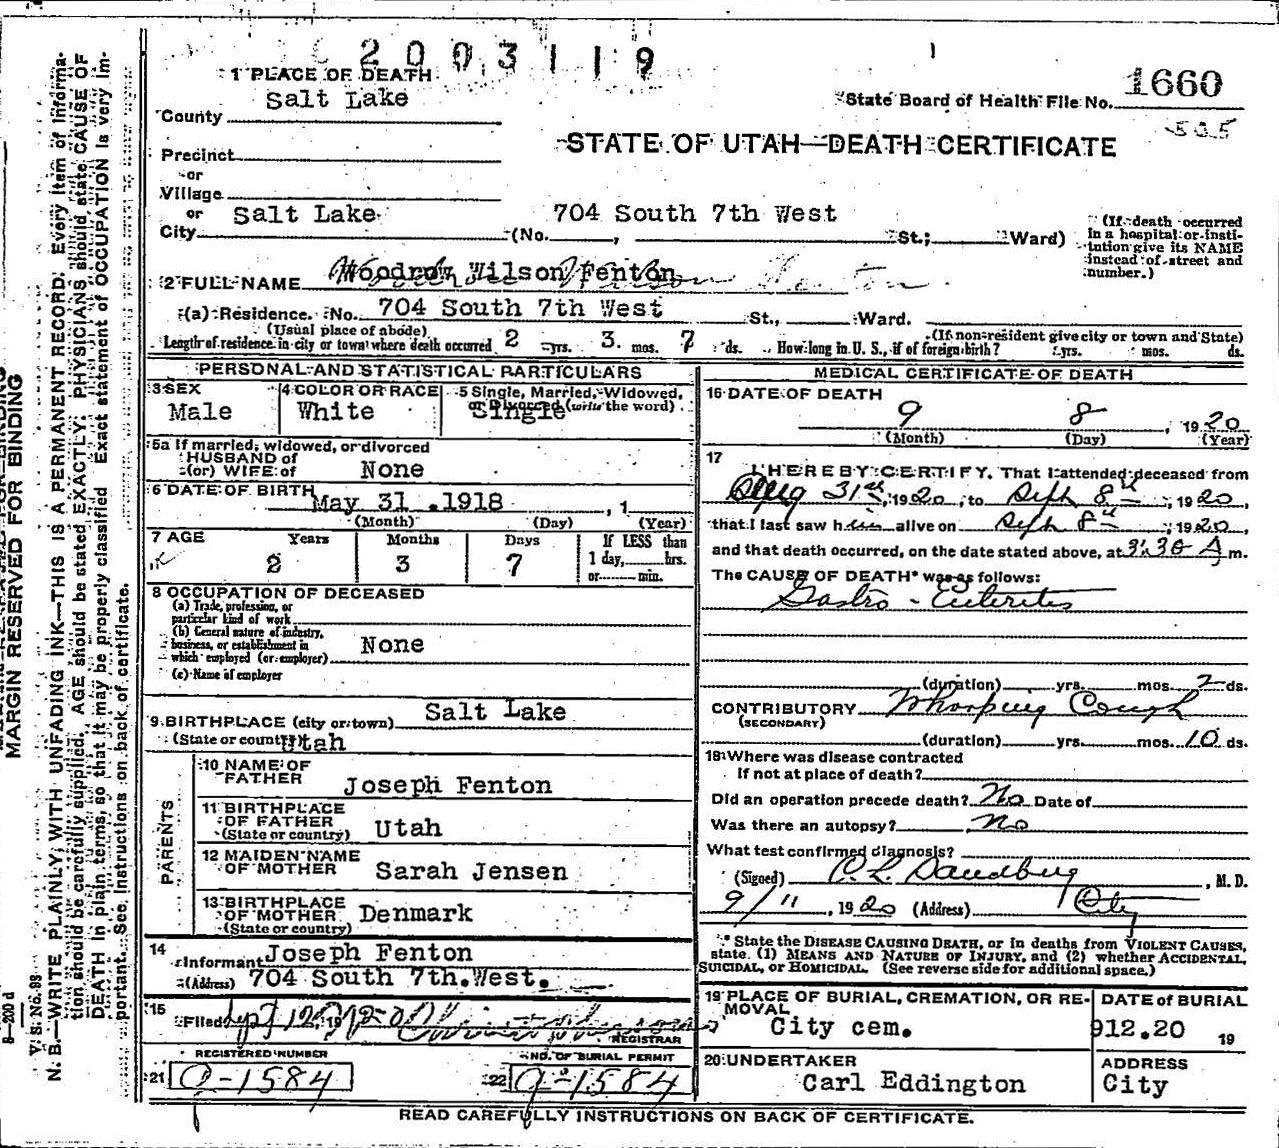 2003119
1 PLACE OF DEATH
1660
State Board of Health File No.
505
Salt Lake
County
STATE OF UTAH—DEATH CERTIFICATE
Precinct
or
Village
or Salt Lake 704 South 7th West
City (No. , St.; Ward)
(If death occurred in a hospital or insti-
tution give its NAME
instead of street and
number.)
2 FULL NAME Woodrow Wilson Fenton
(a) Residence. No. 704 South 7th West St., Ward.
(Usual place of abode) (If non-resident give city or town and State)
Length of residence in city or town where death occurred 2 yrs. 3. mos. 7 ds. How long in U. S., if of foreign birth? yrs. mos. ds.
PERSONAL AND STATISTICAL PARTICULARS
3 SEX Male
4 COLOR OR RACE White
5 Single, Married, Widowed,
or Divorced (write the word)
Single
5a If married, widowed, or divorced
HUSBAND of
(or) WIFE of None
6 DATE OF BIRTH May 31 .1918 , 1
(Month) (Day) (Year)
7 AGE Years Months Days If LESS than
1 day, hrs.
or min.
2 3 7
8 OCCUPATION OF DECEASED
(a) Trade, profession, or
particular kind of work
(b) General nature of industry,
business, or establishment in
which employed (or employer)
None
(c) Name of employer
9 BIRTHPLACE (city or town) Salt Lake
(State or country) Utah
PARENTS
10 NAME OF
FATHER Joseph Fenton
11 BIRTHPLACE
OF FATHER
(State or country) Utah
12 MAIDEN NAME
OF MOTHER Sarah Jensen
13 BIRTHPLACE
OF MOTHER Denmark
(State or country)
14
Informant Joseph Fenton
(Address) 704 South 7th. West.
15
Filed Sept 12, 1920
REGISTRAR
REGISTERED NUMBER
21 Q-1584
NO. OF BURIAL PERMIT
22 Q-1584
MEDICAL CERTIFICATE OF DEATH
16 DATE OF DEATH
9 8 , 1920
(Month) (Day) (Year)
17
I HEREBY CERTIFY, That I attended deceased from
Aug 31st, 1920, to Sept 8th, 1920,
that I last saw him alive on Sept 8th, 1920,
and that death occurred, on the date stated above, at 3:30 A m.
The CAUSE OF DEATH* was as follows:
Gastro-Enteritis
(duration) yrs. mos 2 ds.
CONTRIBUTORY Whooping Cough
(SECONDARY)
(duration) yrs. mos. 10 ds.
18 Where was disease contracted
If not at place of death?
Did an operation precede death? No Date of
Was there an autopsy? No
What test confirmed diagnosis?
(Signed) , M. D.
9/11, 1920 (Address) City
* State the DISEASE CAUSING DEATH, or in deaths from VIOLENT CAUSES,
state (1) MEANS AND NATURE OF INJURY, and (2) whether ACCIDENTAL,
SUICIDAL, or HOMICIDAL. (See reverse side for additional space.)
19 PLACE OF BURIAL, CREMATION, OR RE-
MOVAL
City cem.
DATE of BURIAL
912.20 19
20 UNDERTAKER
Carl Eddington
ADDRESS
City
READ CAREFULLY INSTRUCTIONS ON BACK OF CERTIFICATE.
MARGIN RESERVED FOR BINDING
V. S. No. 98
N. B.—WRITE PLAINLY WITH UNFADING INK—THIS IS A PERMANENT RECORD. Every item of informa-
tion should be carefully supplied. AGE should be stated EXACTLY. PHYSICIANS should state CAUSE OF
DEATH in plain terms, so that it may be properly classified. Exact statement of OCCUPATION is very im-
portant. See instructions on back of certificate.